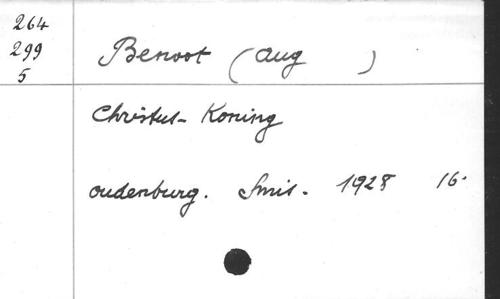 264
299
5
Benoot (Aug )
Christus-Koning
Oudenburg. Smis. 1928 16°